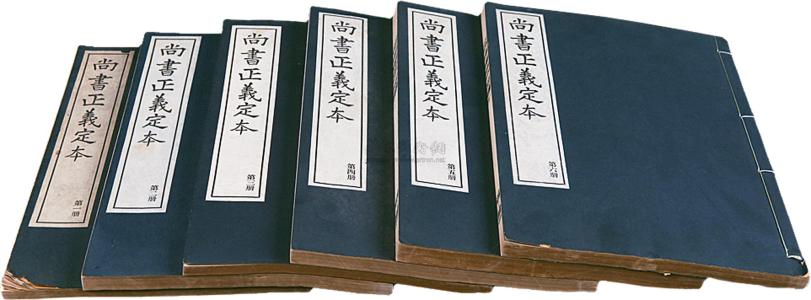 尚書正義定本
第一册
尚書正義定本
第二册
尚書正義定本
第三册
尚書正義定本
第四册
尚書正義定本
第五册
尚書正義定本
第六册